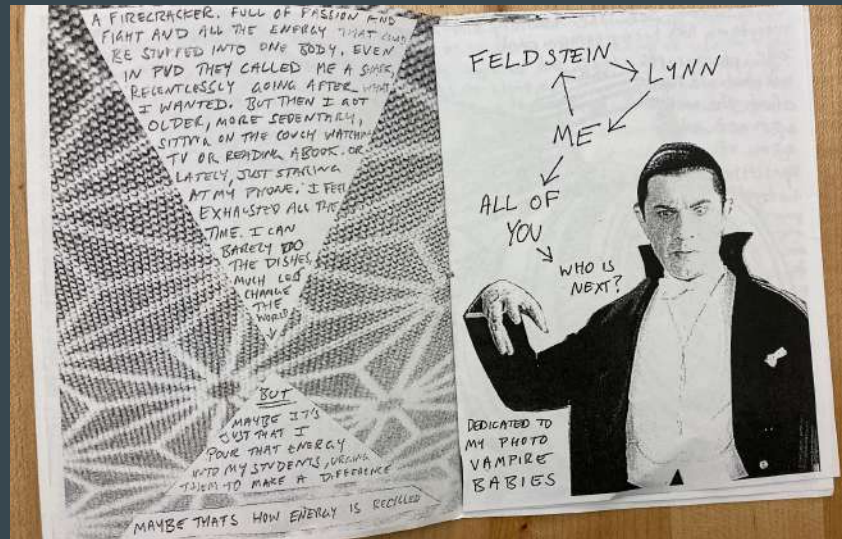 A FIRECRACKER. FULL OF PASSION AND
FIGHT AND ALL THE ENERGY THAT COULD
BE STUFFED INTO ONE BODY. EVEN
IN PVD THEY CALLED ME A SHARK,
RELENTLESSLY GOING AFTER WHAT
I WANTED. BUT THEN I GOT
OLDER, MORE SEDENTARY,
SITTING ON THE COUCH WATCHING
TV OR READING A BOOK. OR
LATELY, JUST STARING
AT MY PHONE. I FEEL
EXHAUSTED ALL THE
TIME. I CAN
BARELY DO
THE DISHES,
MUCH LESS
CHANGE
THE
WORLD
BUT
MAYBE IT'S
JUST THAT I
POUR THAT ENERGY
INTO MY STUDENTS, URGING
THEM TO MAKE A DIFFERENCE
MAYBE THATS HOW ENERGY IS RECYCLED
FELDSTEIN
LYNN
ME
ALL OF
YOU
WHO IS
NEXT?
DEDICATED TO
MY PHOTO
VAMPIRE
BABIES